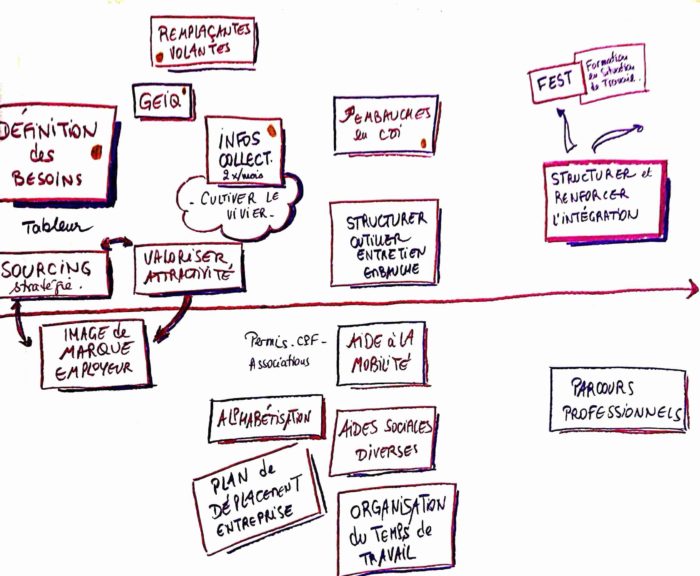 REMPLAÇANTES
VOLANTES
GEIQ
DÉFINITION
des
BESOINS
INFOS
COLLECT.
2x/mois
- CULTIVER LE
VIVIER -
EMBAUCHES
en CDI
FEST
Formation
en Situation
de Travail.
STRUCTURER et
RENFORCER
L'INTÉGRATION
Tableur
SOURCING
stratégie.
VALORISER
ATTRACTIVITÉ
STRUCTURER
OUTILLER
ENTRETIEN
EMBAUCHE
IMAGE de
MARQUE
EMPLOYEUR
Permis - CPF -
Associations
AIDE à LA
MOBILITÉ
ALPHABÉTISATION
AIDES SOCIALES
DIVERSES
PARCOURS
PROFESSIONNELS
PLAN de
DÉPLACEMENT
ENTREPRISE
ORGANISATION
du TEMPS de
TRAVAIL